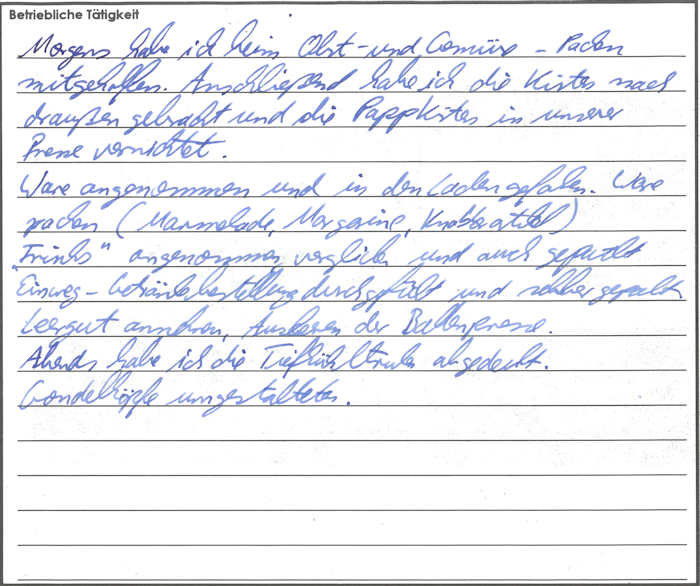 Betriebliche Tätigkeit
Morgens habe ich beim Obst- und Gemüse - Packen
mitgeholfen. Anschließend habe ich die Kisten nach
draußen gebracht und die Pappkisten in unserer
Presse vernichtet.
Ware angenommen und in den Laden gefahren. Ware
packen (Marmelade, Margarine, Knabberartikel)
"Trinks" angenommen, verglichen und auch gepackt
Einweg - Getränkebestellung durchgeführt und selber gepackt
Leergut annehmen, Ausleeren der Ballenpresse.
Abends habe ich die Tiefkühltruhen abgedeckt.
Gondelköpfe umgestaltet.